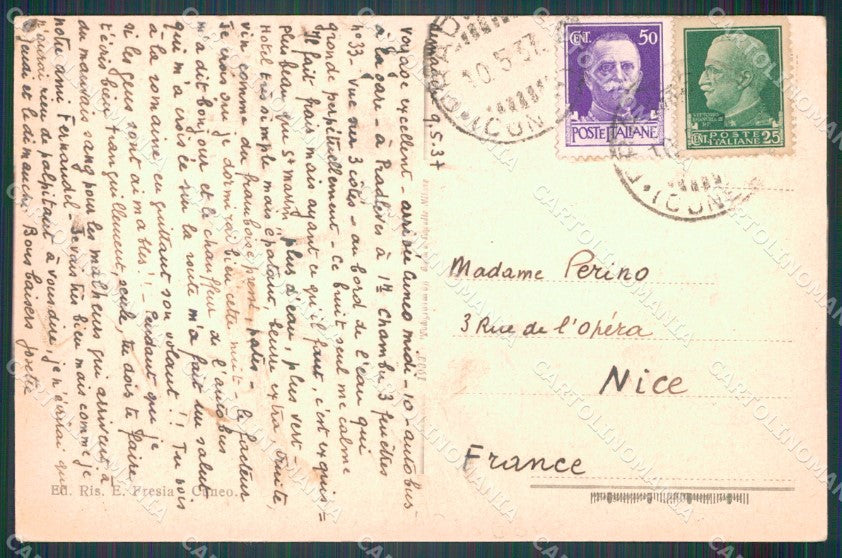 Dimanche 9.5.37
voyage excellent - arrivée Cuneo midi - 10 - autobus -
à la gare - à Pradleves à 1h. Chambre 3 fenêtres
no 33 vue sur 3 côtés - au bord de l'eau qui
gronde perpétuellement - Ce bruit seul me calme
Il fait frais mais ayant ce qu'il faut, c'est exquis =
plus beau que St Martin, plus d'eau, plus vert -
Hôtel très simple mais épatant, beurre extra, truite,
vin comme du framboise pressé, patés - le facteur
Je crois que je dormirai bien cette nuit
m'a dit bonjour et le chauffeur de l'autobus
qui m'a croisée sur la route m'a fait un salut
à la romaine en quittant son volant !! Tu vois
si les gens sont aimables !! - Pendant que je
t'écris bien tranquillement, seule, tu dois te faire
du mauvais sang pour les malheurs qui arrivent à
notre ami Fernandel - Je vais très bien mais comme je
n'aurai rien de palpitant à vous dire, je n'écrirai que
Jeudi et le dimanche Bons baisers Josette
CENT. 50
POSTE ITALIANE
POSTE
ITALIANE
CENT. 25
10.5.37
(CUNEO)
(CUNEO)
Madame Perino
3 Rue de l'Opéra
Nice
France
Ed. Ris. E. Fresia - Cuneo.
CARTOLINOMANIA